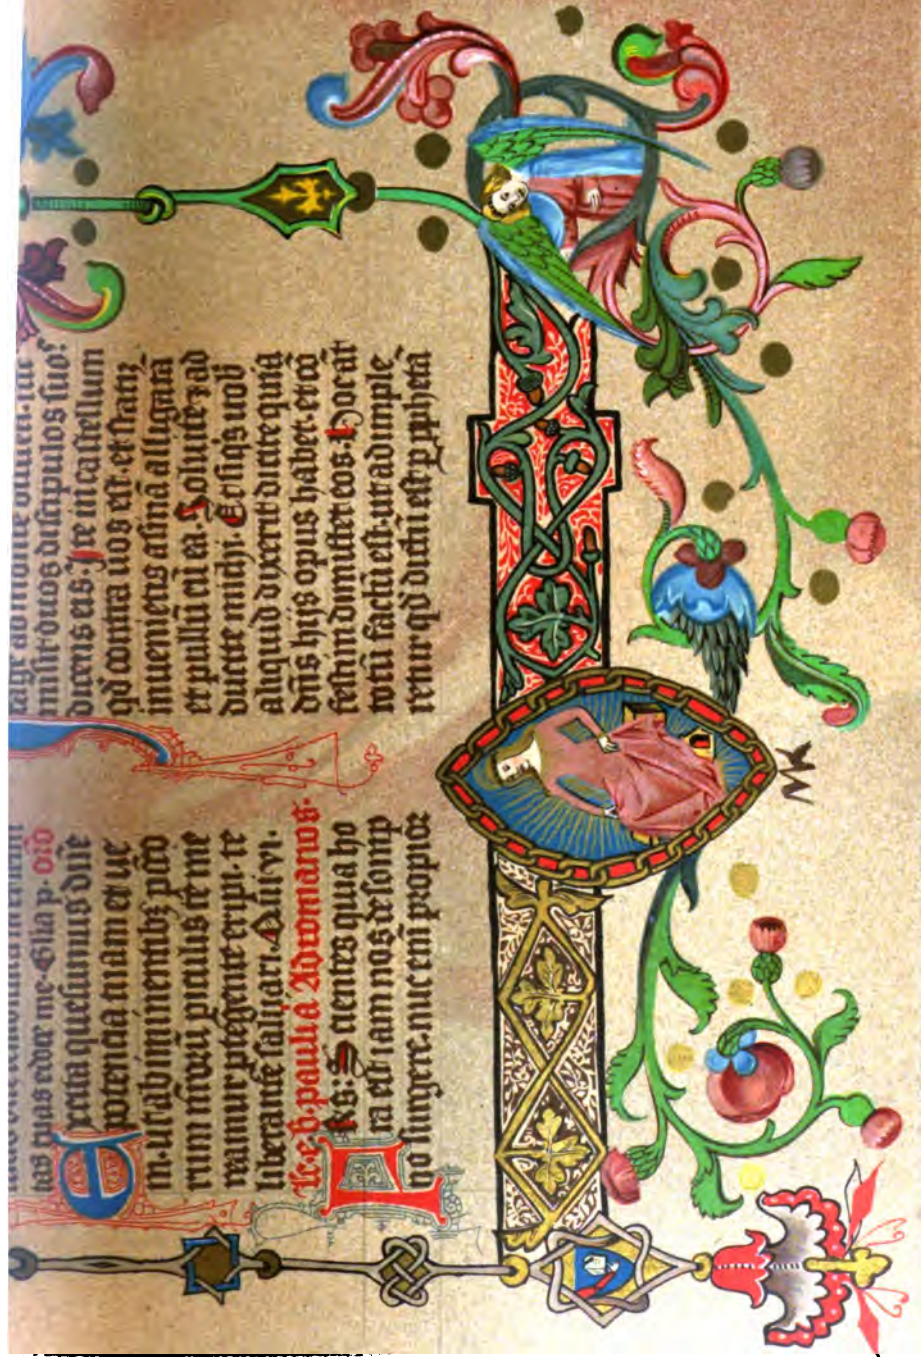 tas tuas edoce me. Gl̄ia p. or̄o
Excita quesumus dn̄e
potencia tuam et ue
ni. ut ab iminentibꝫ pcc̄o
rum nr̄oꝝ piculis te me
reamur ꝓtegente eripi. te
liberante saluari. Qui vi.
Lcc̄. b. pauli a̕ Ad romanos.
F̄rs: Scientes quia ho
ra est iam nos de somp
no surgere. nūc enī propior
misit duos discipulos suos.
dicens eis. Ite in castellum
qd̄ contra uos est. et statī
inuenietis asinā alligatā
et pullū cū ea. Soluite ⁊ ad
ducite michi. Et si qis uob̄
aliquid dixerit dicite quia
dn̄s hijs opus habet. et cōfe
festim dimittet eos. Hoc aūt
totū factū est. ut adimple
retur qd̄ dictū est ꝑ ꝓphetā
MK